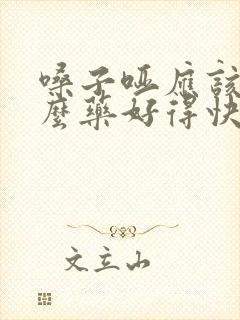 嗓子哑应該
麼藥好得快
文立山